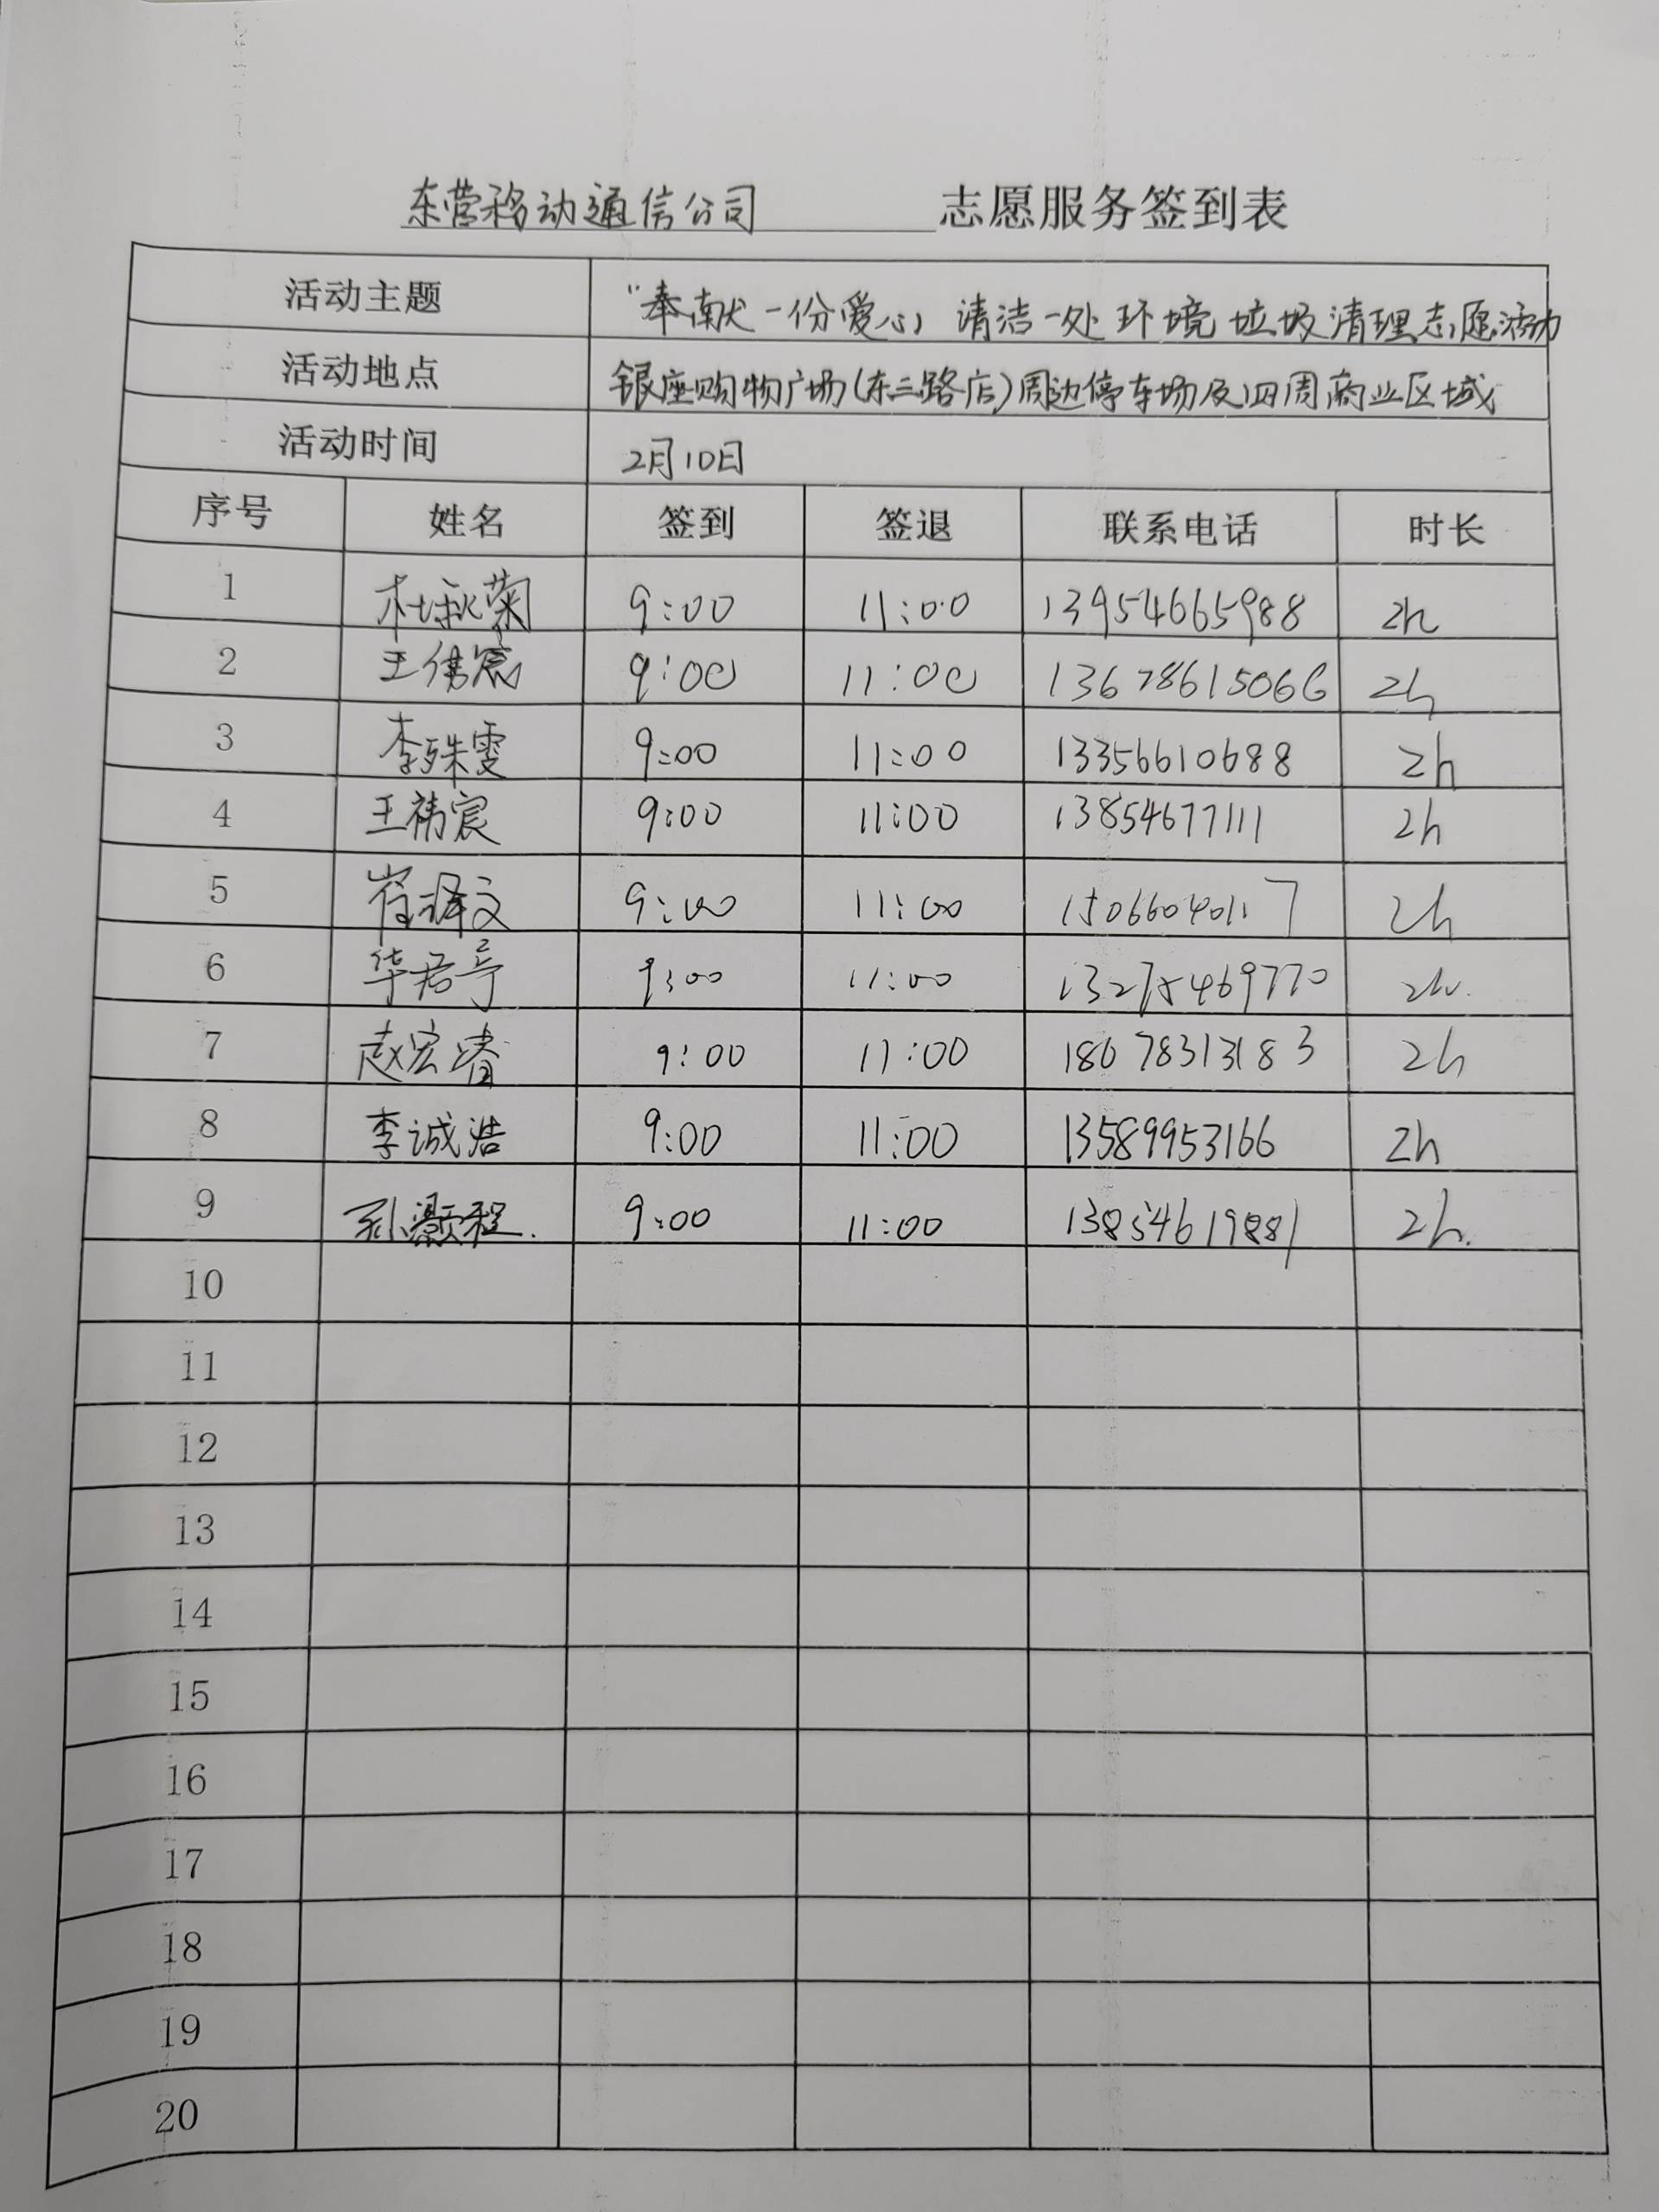 东营移动通信公司 志愿服务签到表
活动主题 “奉献一份爱心 请洁一处环境 垃圾清理志愿活动
活动地点 银座购物广场(东三路店)周边停车场及四周商业区域
活动时间 2月10日
序号 姓名 签到 签退 联系电话 时长
1 杜秋菊 9:00 11:00 13954665988 2h
2 王伟宸 9:00 11:00 13678615066 2h
3 李殊雯 9:00 11:00 13356610688 2h
4 王祎宸 9:00 11:00 13854677111 2h
5 崔译文 9:00 11:00 15066040117 2h
6 华君 9:00 11:00 2h.
7 赵宏睿 9:00 11:00 18678313183 2h
8 李诚浩 9:00 11:00 13589953166 2h
9 孙灏程. 9:00 11:00 13854619881 2h.
10
11
12
13
14
15
16
17
18
19
20